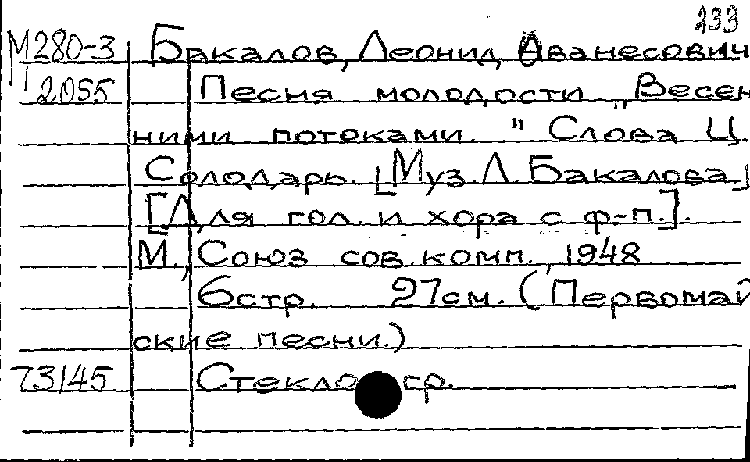 233
М280-3 Бакалов, Леонид Ованесович
2055 Песня молодости „Весен
ними потоками." Слова Ц.
Солодарь. [Муз. Л. Бакалова]
[Для гол. и хора с ф-п.].
М., Союз сов. комп., 1948
6стр. 27см. (Первомай
ские песни.)
73145 Стекло ср.